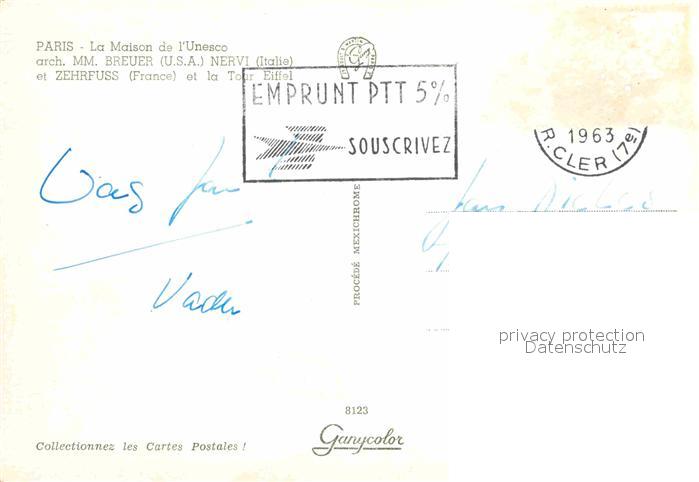 PARIS - La Maison de l'Unesco
arch. MM. BREUER (U.S.A.) NERVI (Italie)
et ZEHRFUSS (France) et la Tour Eiffel
EMPRUNT PTT 5%
SOUSCRIVEZ
1963
R. CLER (7e)
Dag
Vader
PROCÉDÉ MEXICHROME
privacy protection
Datenschutz
8123
Ganycolor
Collectionnez les Cartes Postales !